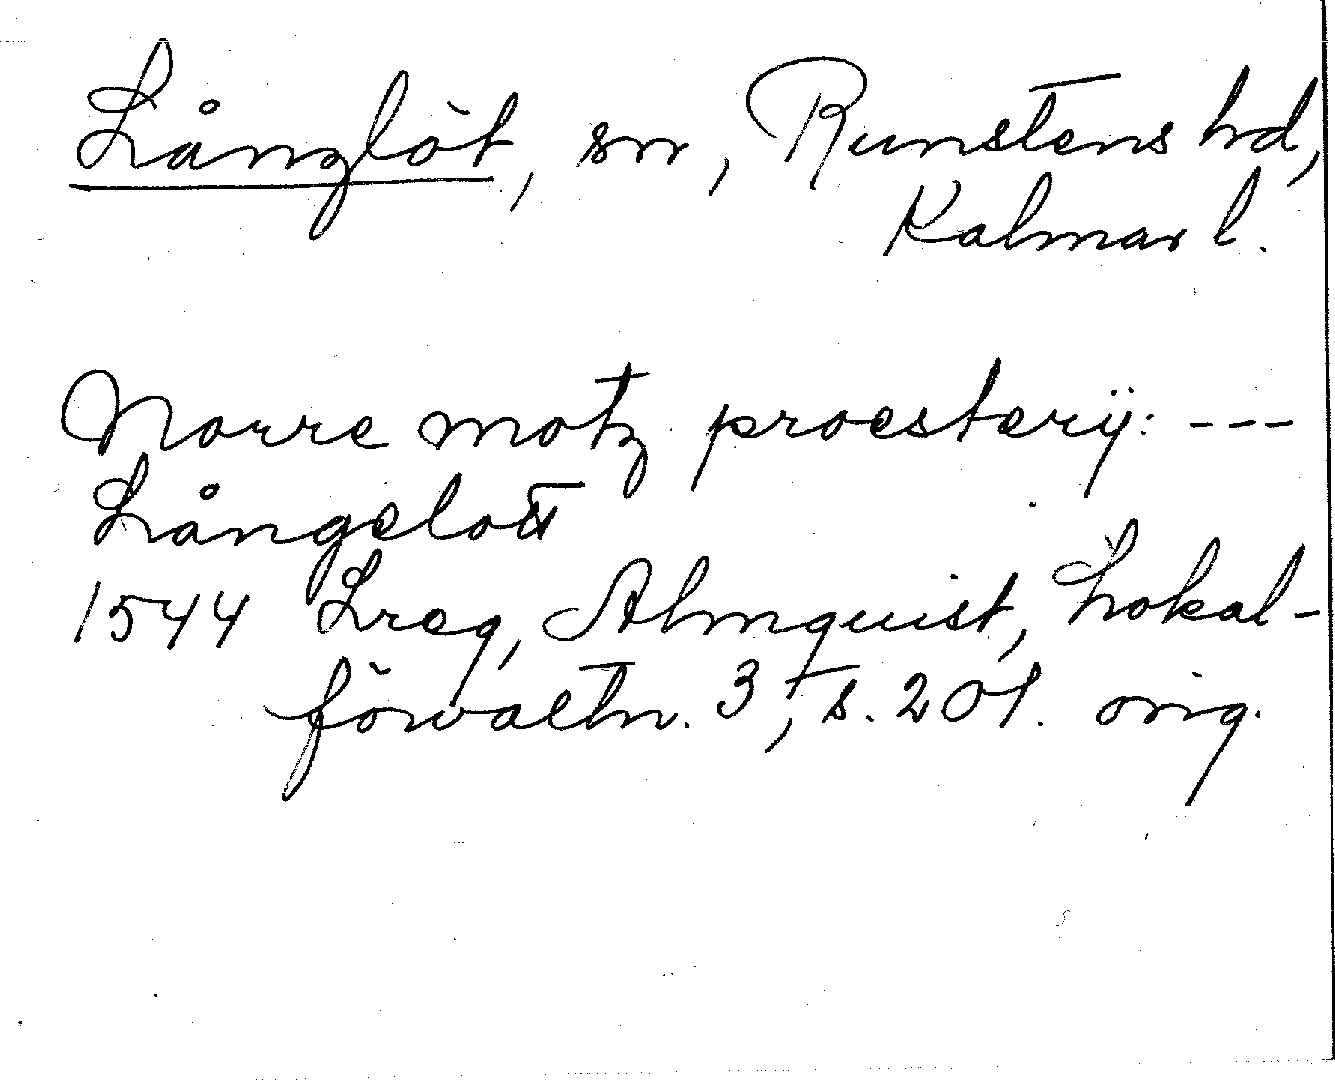 Långlöt, sn, Runstens hd,
Kalmar l.
Norre motz proesterij: ---
Långelott
1544 Lreg, Almquist, Lokal-
förvaltn. 3, s. 201. orig.